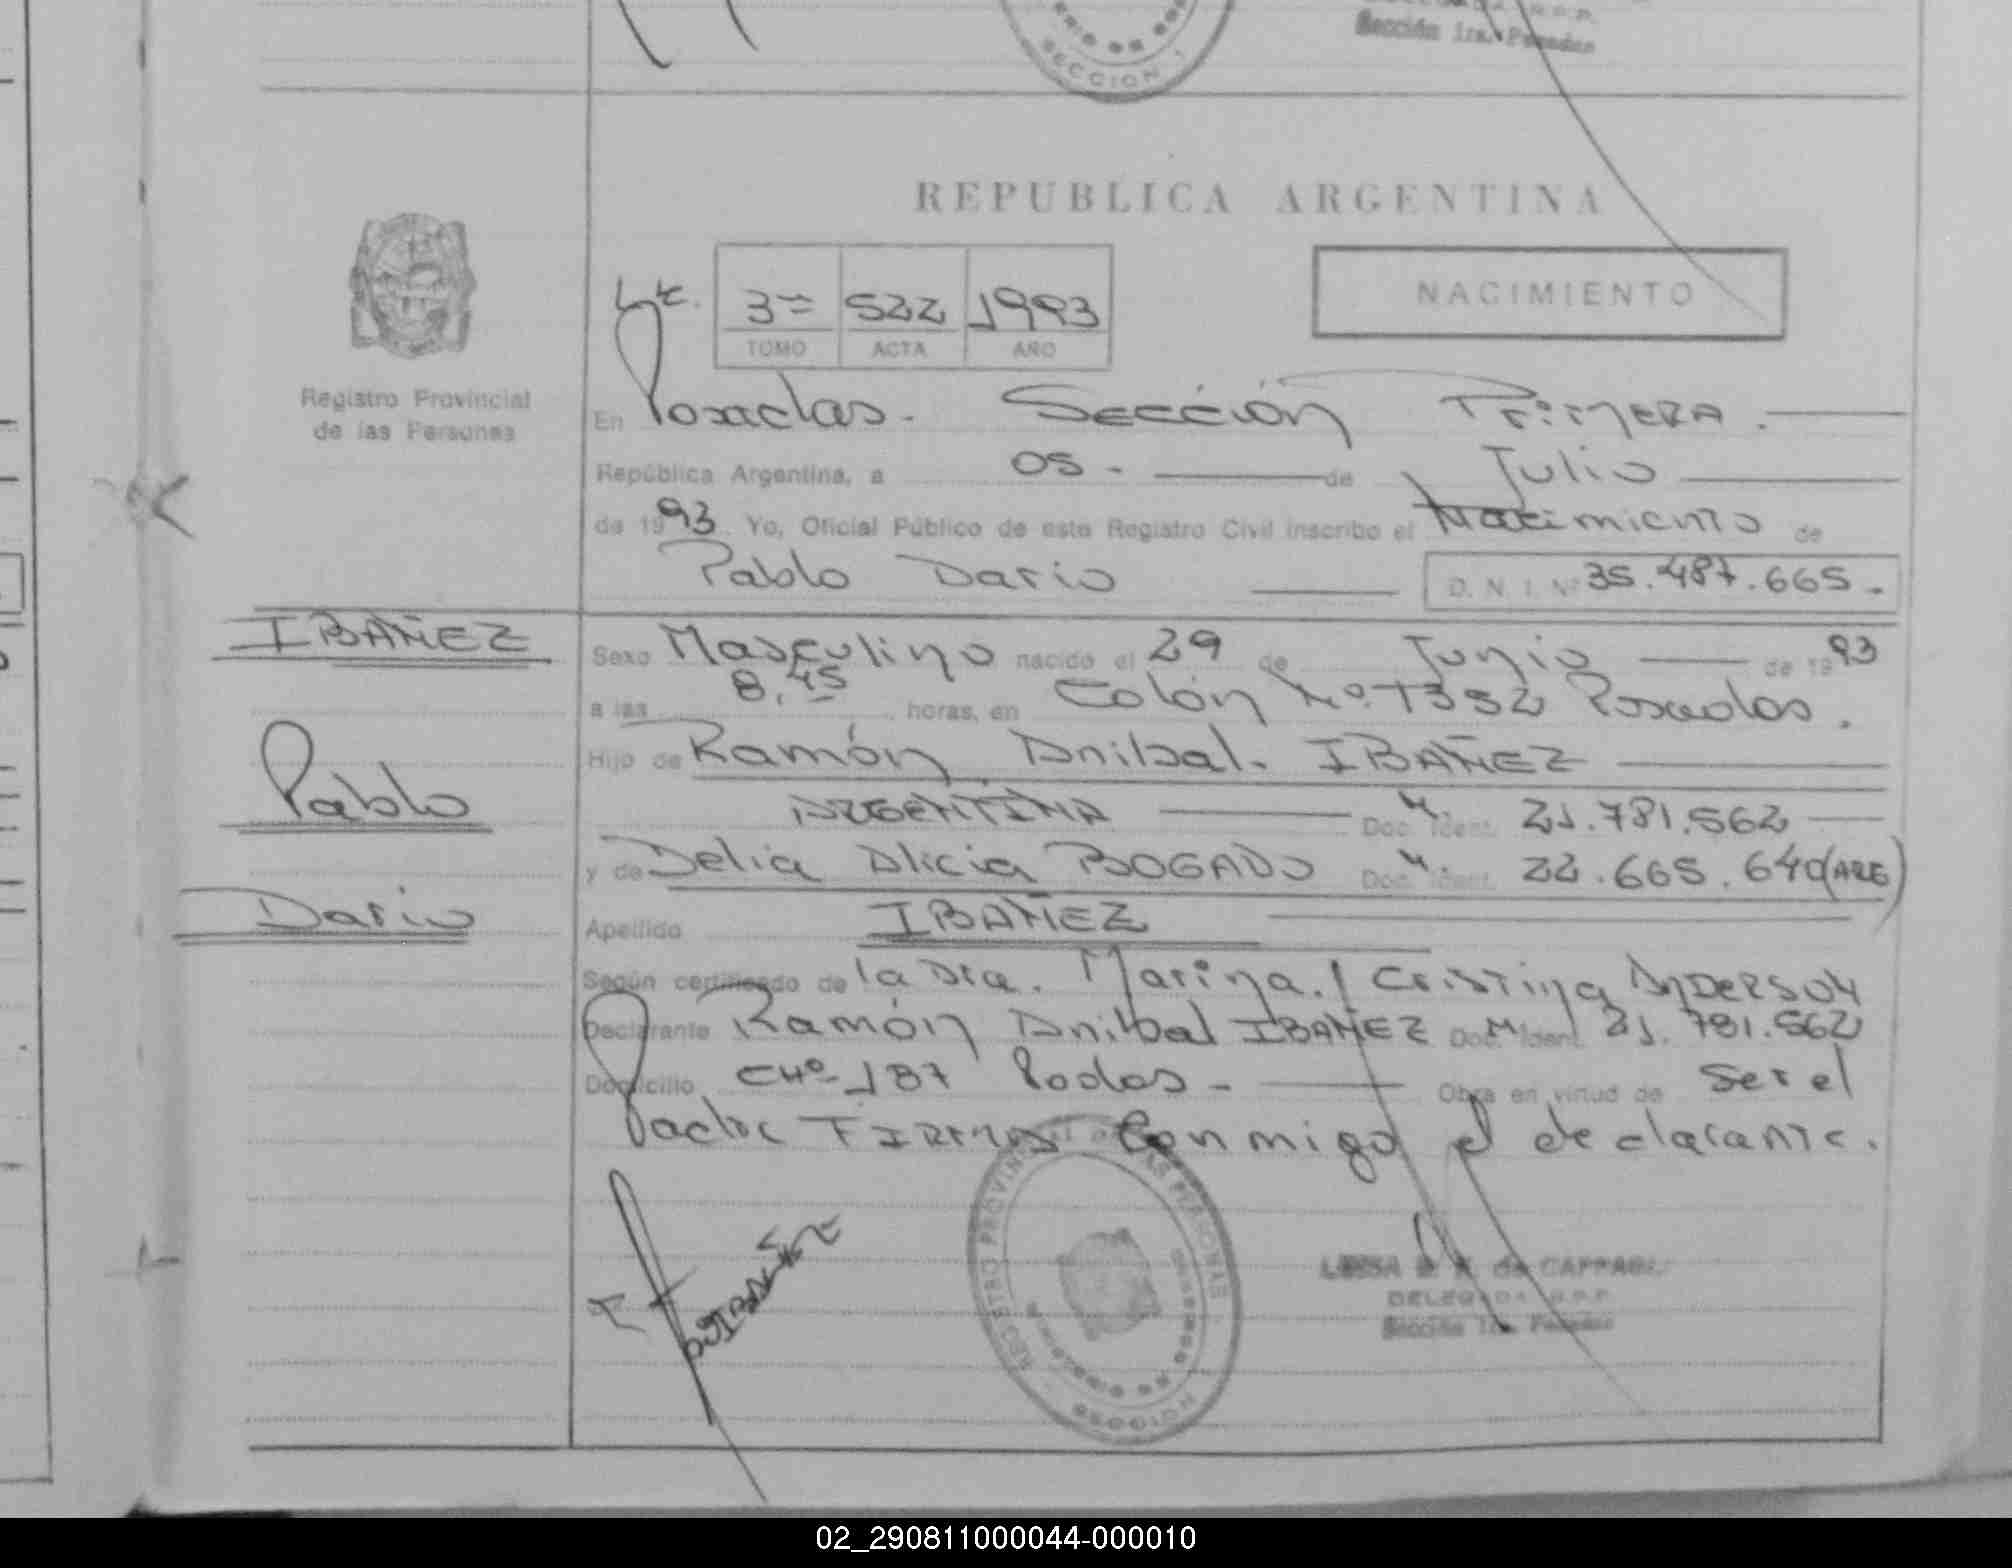 Sección 1ra. Posadas
SECCION 1
REPUBLICA ARGENTINA
3º 522 1993
TOMO ACTA AÑO
NACIMIENTO
Registro Provincial
de las Personas
En Posadas. Sección Primera.
República Argentina, a 05. de Julio
de 1993. Yo, Oficial Público de este Registro Civil inscribo el Nacimiento de
Pablo Dario
D. N. I. Nº 35.487.665.
IBAÑEZ
Pablo
Dario
Sexo Masculino nacido el 29 de Junio de 1993
a las 8,45 horas, en Colón Nº 1352 Posadas.
Hijo de Ramón Anibal. IBAÑEZ
ARGENTINA Doc. Ident. 21.781.562
y de Delia Alicia BOGADO Doc. Ident. 22.665.640 (ARG)
Apellido IBAÑEZ
Según certificado de la Dra. Marina Cristina ANDERSON
Declarante Ramón Anibal IBAÑEZ Doc. Ident. 21.781.562
Domicilio CHº 187 Podas. Obra en virtud de ser el
Padre FIRMA Conmigo el declarante.
REGISTRO PROVINCIAL DE LAS PERSONAS
SECCION 1
DELEGADA R.P.P.
Sección 1ra. Posadas
02_290811000044-000010